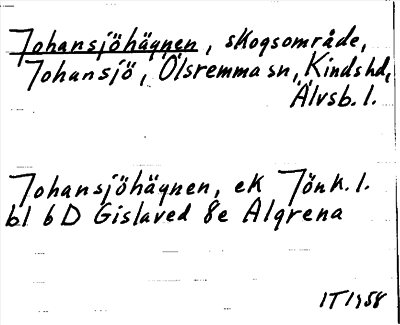 Johansjöhägnen, skogsområde,
Johansjö, Ölsremma sn, Kinds hd,
Älvsb. l.
Johansjöhägnen, ek Jönk. l.
bl 6 D Gislaved 8e Algrena
IT 1958